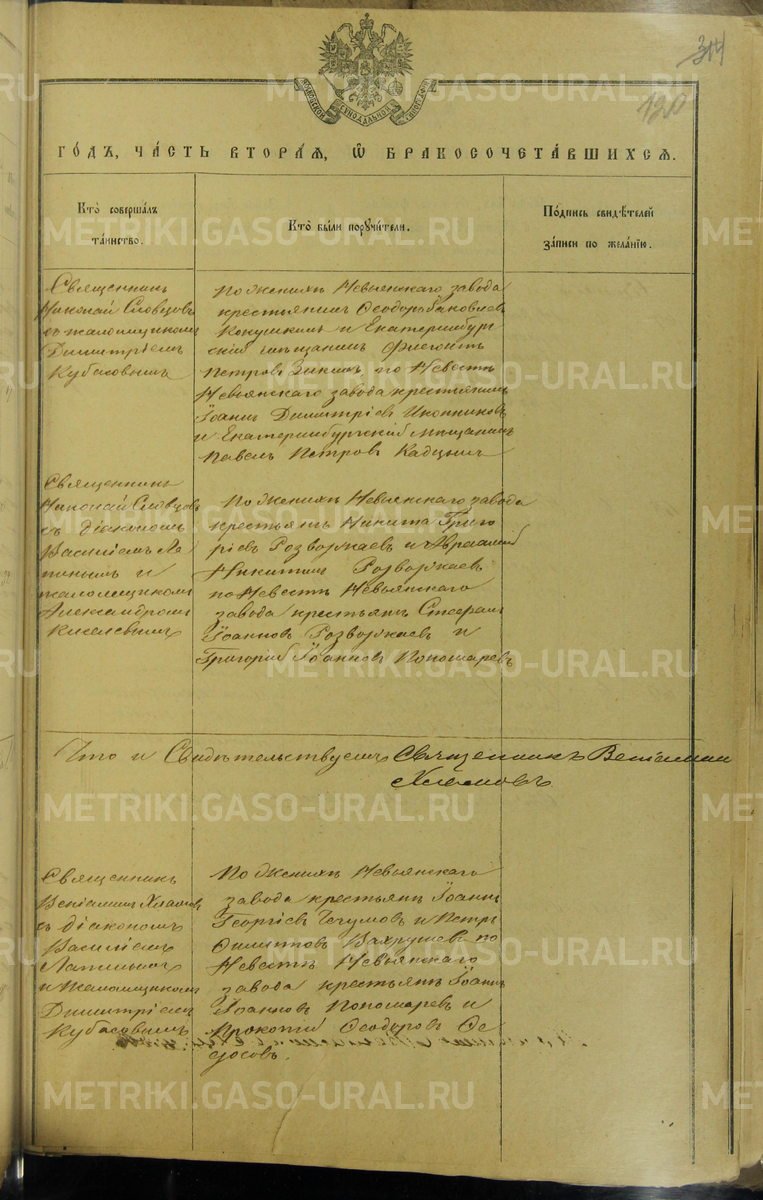 314
120
МОСКОВСКОЙ СѴНОДАЛЬНОЙ ТИПОГРАФІИ
ГО́ДЪ, ЧА́СТЬ ВТОРА́Я, Ѡ҆ БРАКОСОЧЕТА́ВШИХСЯ.
Кто̀ соверша́лъ
та́инство.
Кто̀ бы́ли поручи́тели.
По́дпись свидѣ́телей
за́писи по жела́нію.
Священникъ
Николай Словцовъ
съ псаломщикомъ
Димитріемъ
Кубасовымъ
По женихѣ Невьянскаго завода
крестьянинъ Ѳеодоръ Яковлевъ
Кокушкинъ и Екатеринбург
скій мѣщанинъ Флегонтъ
Петровъ по невѣстѣ
Невьянскаго завода крестьянинъ
Іоаннъ Димитріевъ Иконниковъ
и Екатеринбургскій мѣщанинъ
Павелъ Петровъ
Священникъ
Николай Словцовъ
съ діакономъ
Василіемъ Ла
пинымъ и
псаломщикомъ
Александромъ
Киселевымъ
По женихѣ Невьянскаго завода
крестьяне Никита Григо
ріевъ Розворжаевъ и Авраамій
Никитинъ Розворжаевъ
по невѣстѣ Невьянскаго
завода крестьяне Стефанъ
Іоанновъ Розворжаевъ и
Григорій Іоанновъ Пономаревъ
Что и свидѣтельствуемъ Священникъ Веніаминъ
Хламовъ
Священникъ
Веніаминъ Хламовъ
съ діакономъ
Василіемъ
Лапинымъ
и псаломщикомъ
Димитріемъ
Кубасовымъ
По женихѣ Невьянскаго
завода крестьяне Іоаннъ
Георгіевъ и Петръ
Филипповъ Вахрушевъ по
невѣстѣ Невьянскаго
завода крестьяне Іоаннъ
Іоанновъ Пономаревъ и
Прокопій Ѳеодоровъ Ѳе
досовъ.
METRIKI.GASO-URAL.RU